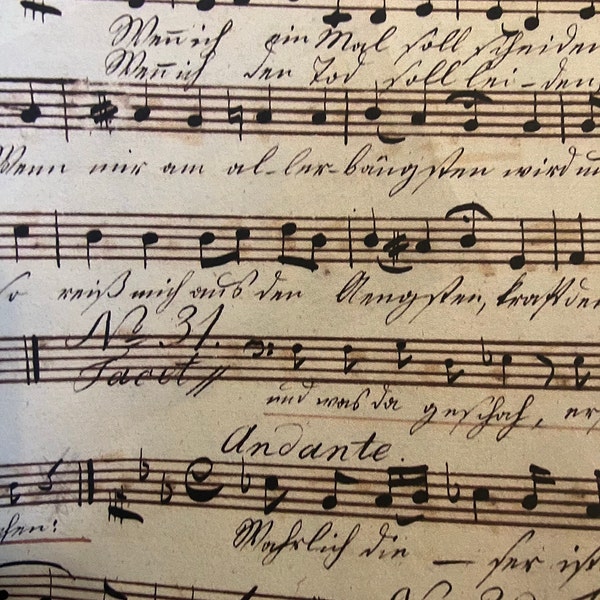 Wen̅ ich ein Mal soll scheiden
Wen̅ ich den Tod soll lei-den,
Wenn mir am al-ler-bängsten wird um
so reiß mich aus den Aengsten, kraft dei
No. 31.
Tacet
und was da geschah, er
Andante.
hen:
Wahrlich die — ser ist